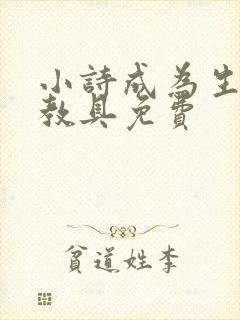 小詩成為生
教具免費
貧道姓李